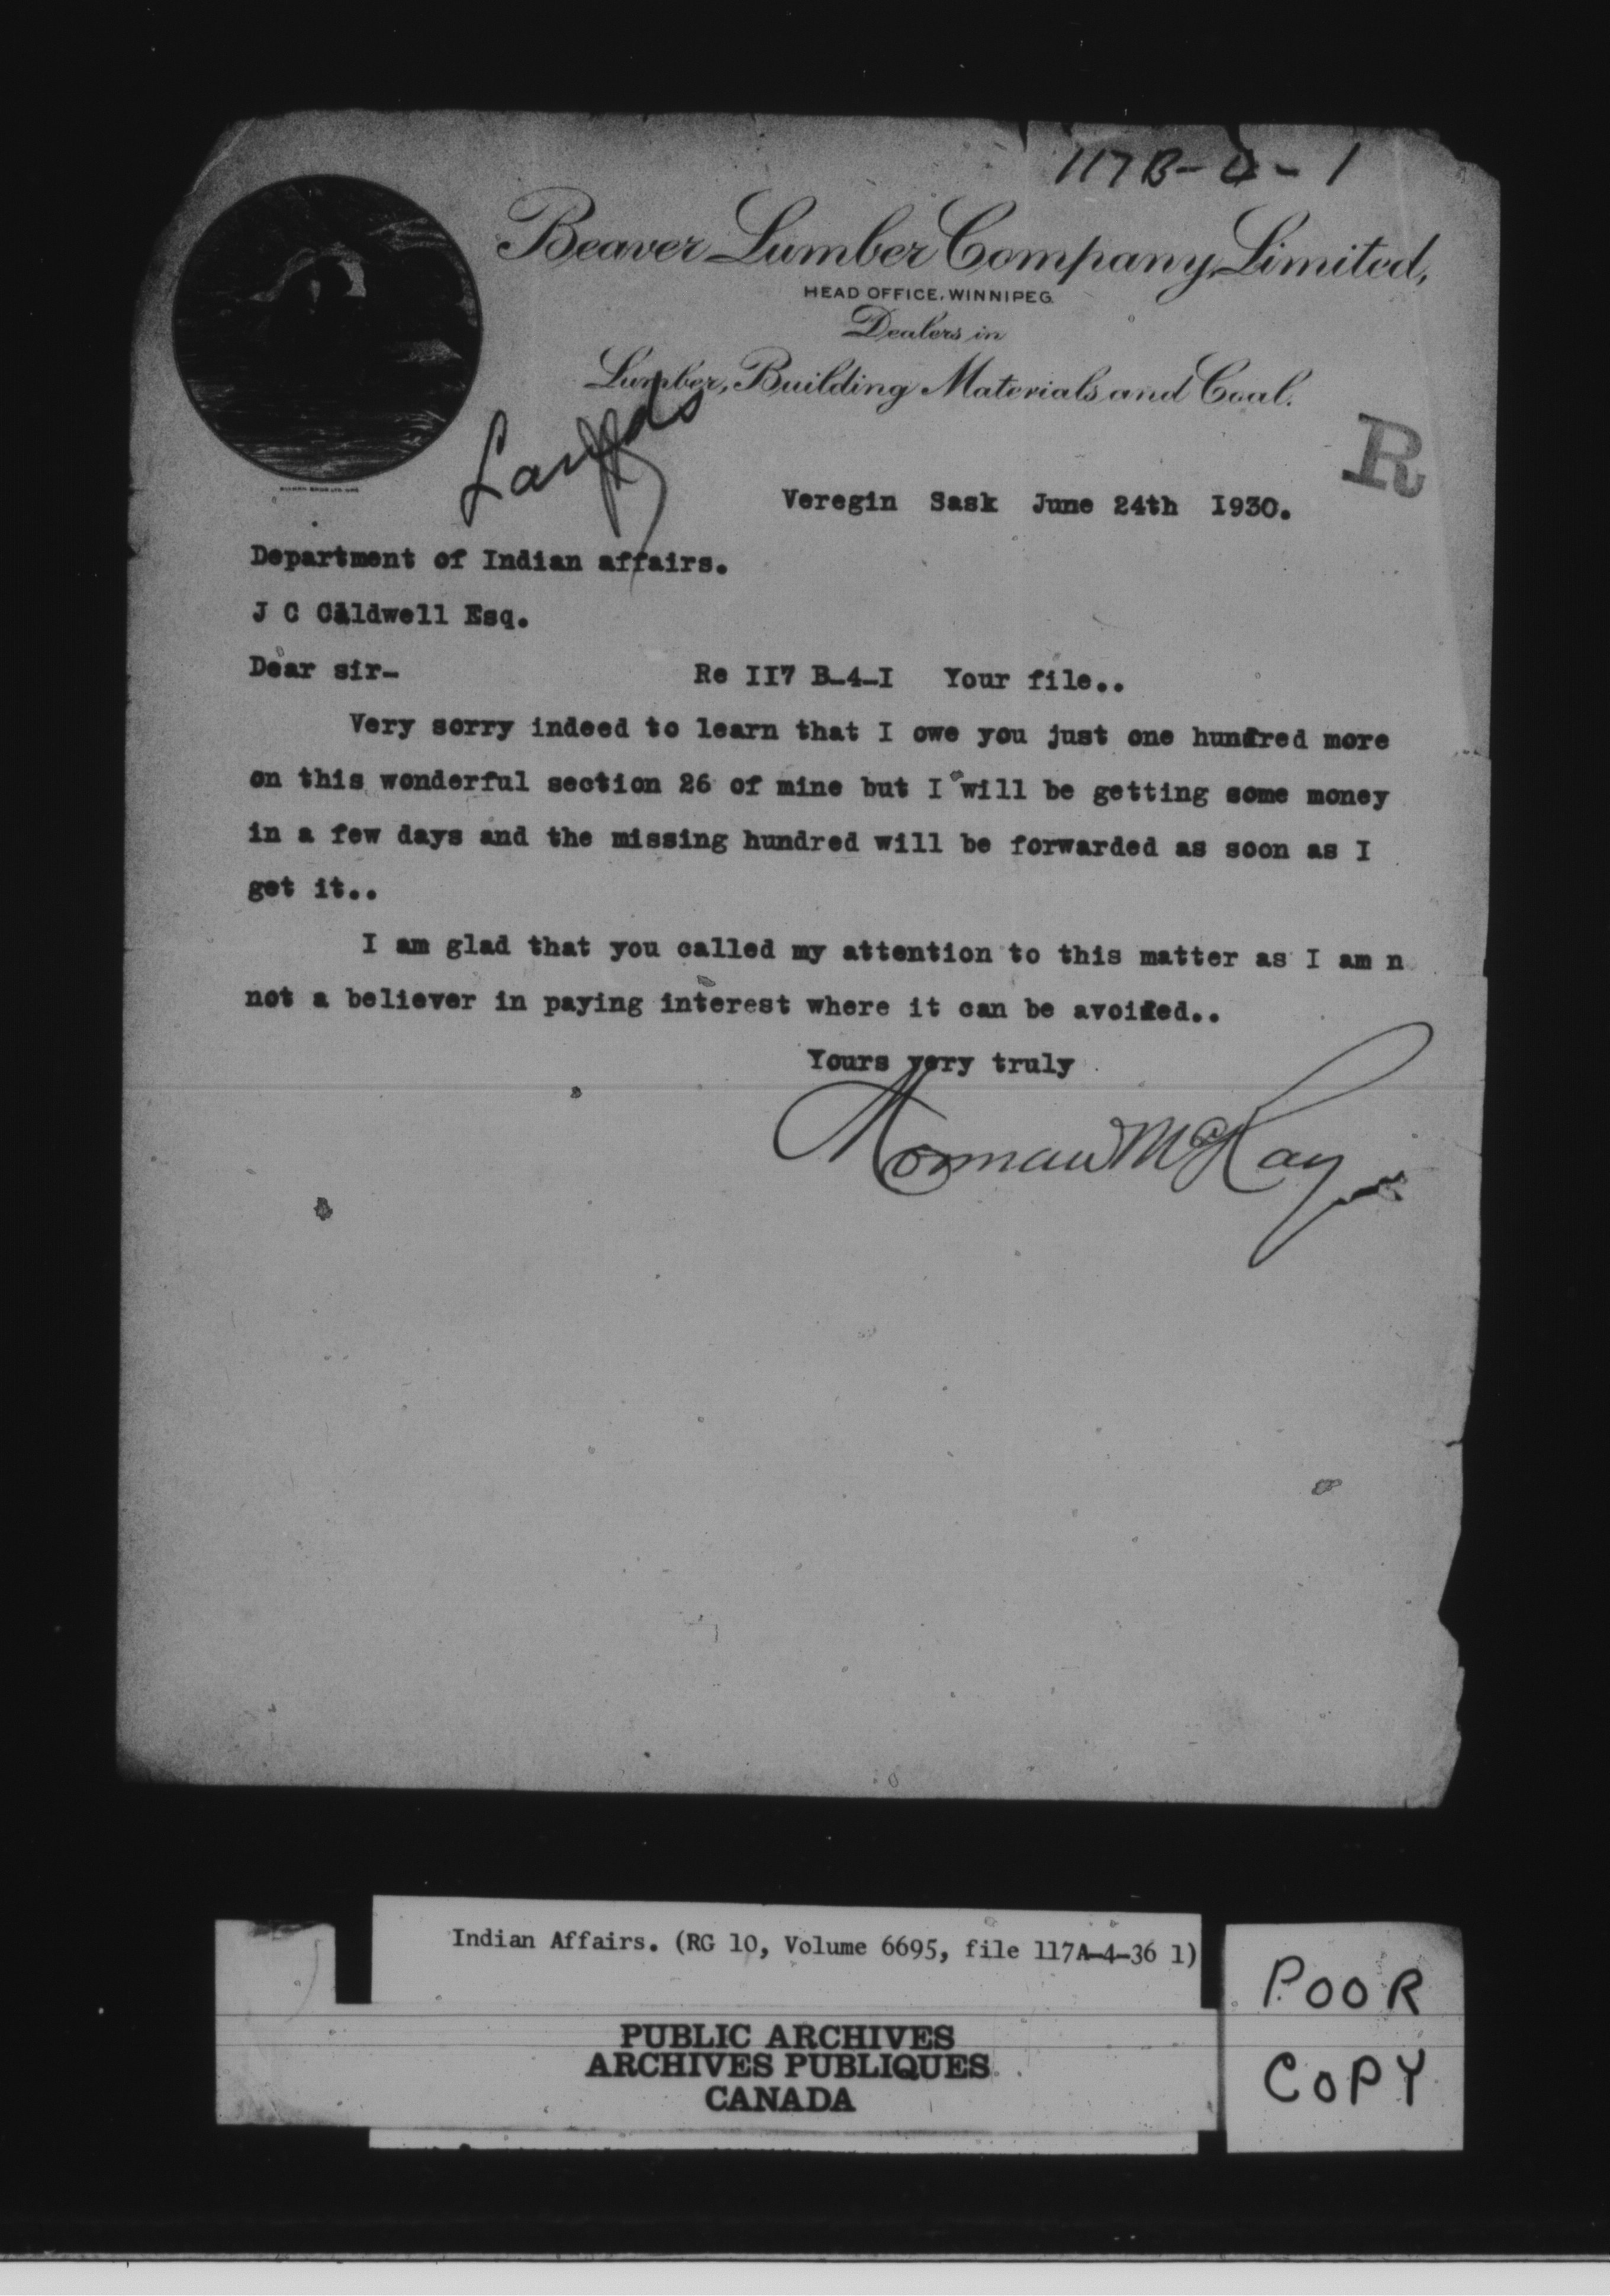 117B-4-1
Beaver Lumber Company, Limited,
HEAD OFFICE, WINNIPEG.
Dealers in
Lumber, Building Materials and Coal.
R
Veregin Sask June 24th I930.
Department of Indian affairs.
J C Caldwell Esq.
Dear sir- Re II7 B-4-I Your file..
Very sorry indeed to learn that I owe you just one hundred more
on this wonderful section 26 of mine but I will be getting some money
in a few days and the missing hundred will be forwarded as soon as I
get it..
I am glad that you called my attention to this matter as I am n
not a believer in paying interest where it can be avoided..
Yours very truly
Norman McKay
Indian Affairs. (RG 10, Volume 6695, file 117A-4-36 1)
PUBLIC ARCHIVES
ARCHIVES PUBLIQUES
CANADA
POOR
COPY